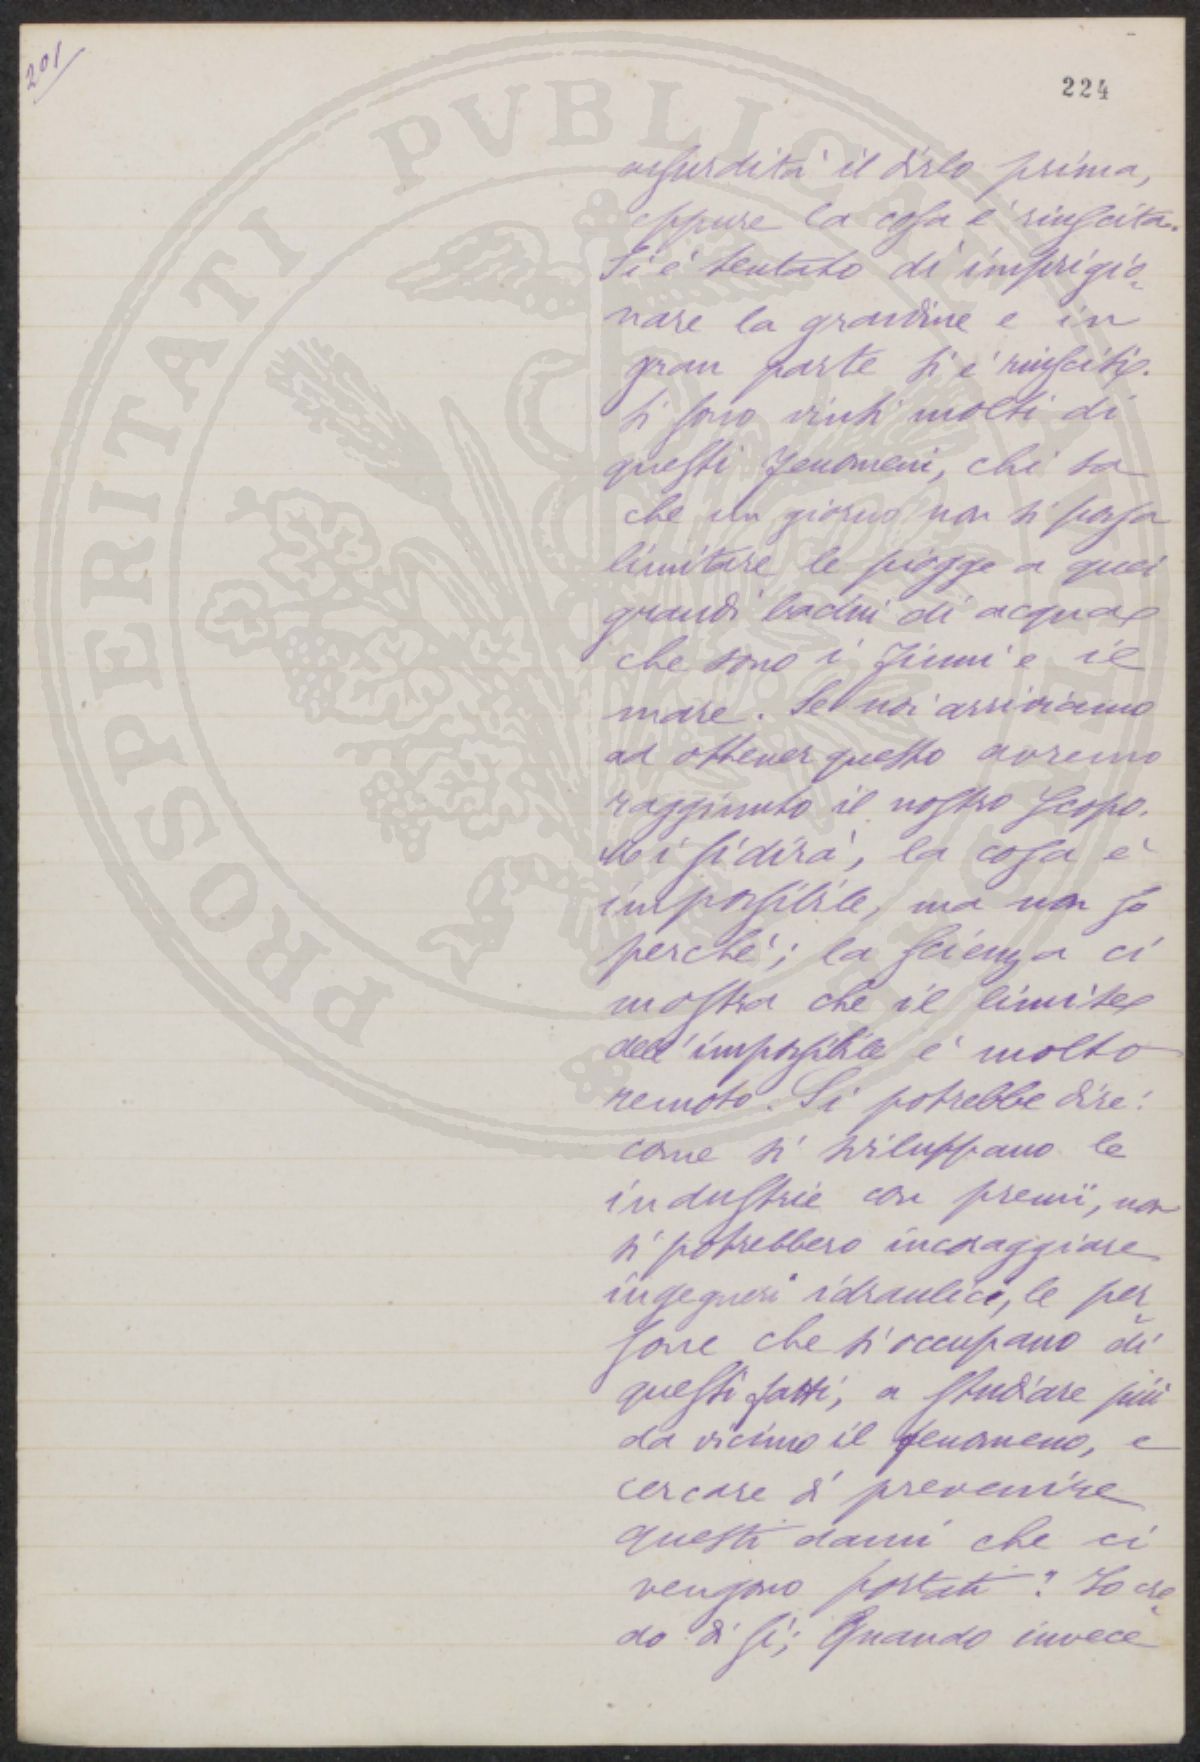 201
224
PROSPERITATI PVBLICAE
assurdità il dirlo prima,
eppure la cosa è riuscita.
Si è tentato di imprigio-
nare la grandine e in
gran parte si è riusciti.
Si sono vinti molti di
questi fenomeni, chi sa
che un giorno non si possa
limitare le piogge a quei
grandi bacini di acqua
che sono i fiumi e il
mare. Se noi arriviamo
ad ottener questo avremo
raggiunto il nostro scopo.
Mi si dirà, la cosa è
impossibile, ma non so
perchè; la scienza ci
mostra che il limite
dell'impossibile è molto
remoto. Si potrebbe dire:
come si sviluppano le
industrie con premii, non
si potrebbero incoraggiare
ingegneri idraulici, le per-
sone che si occupano di
questi fatti, a studiare più
da vicino il fenomeno, e
cercare di prevenire
questi danni che ci
vengono portati? Io cre-
do di sì; Quando invece